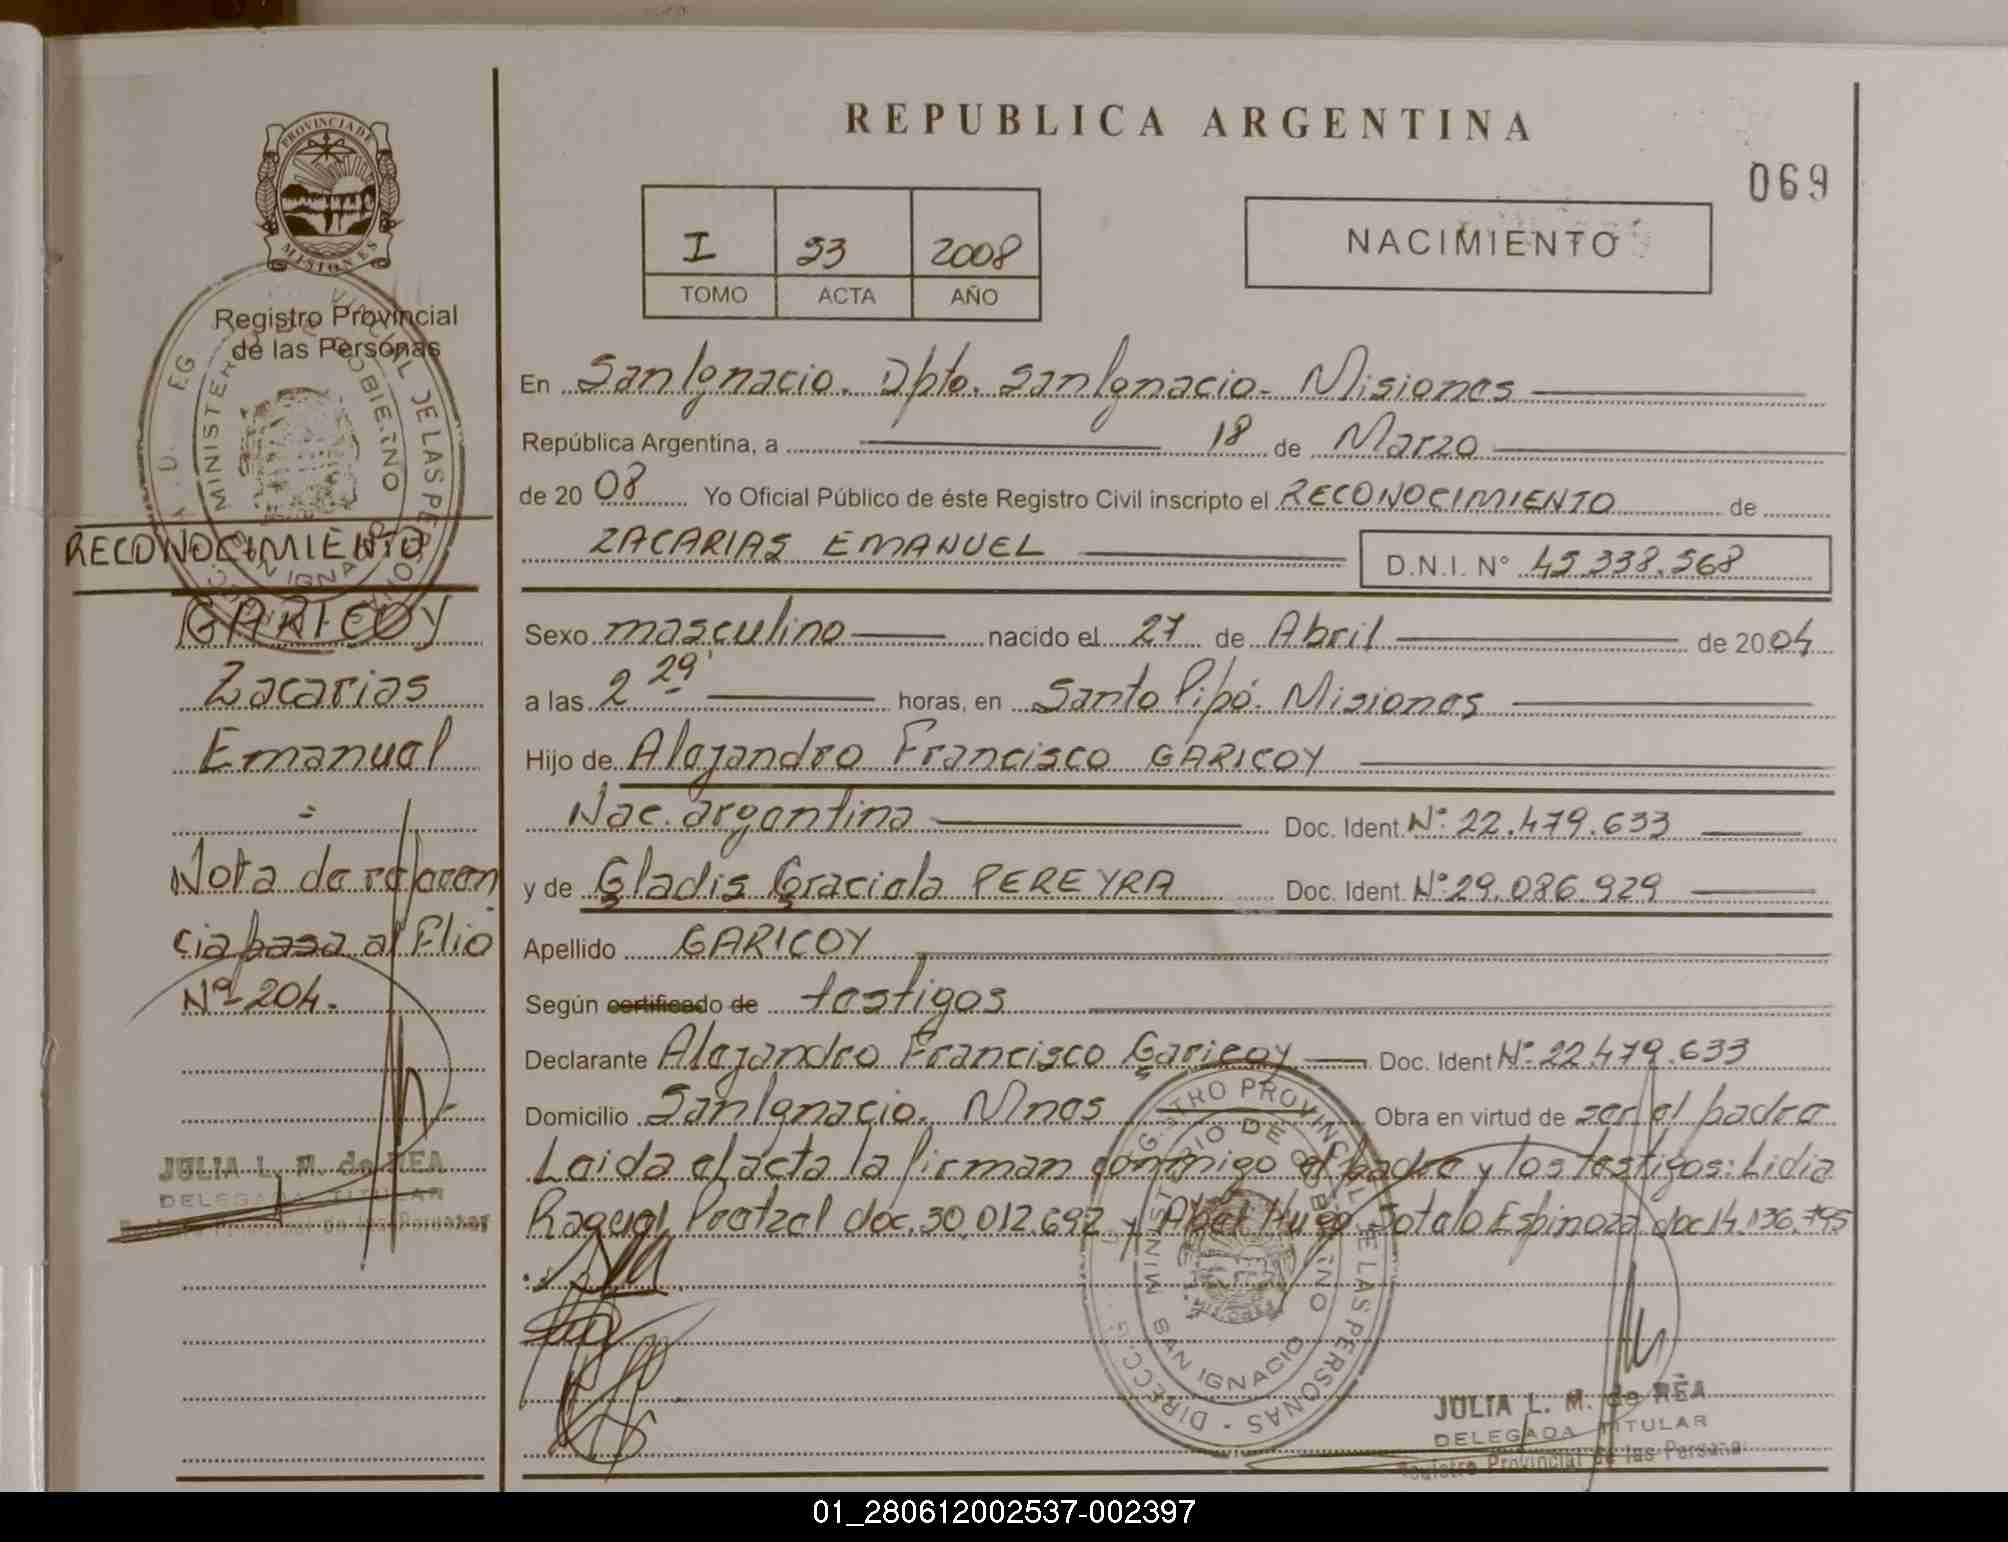 REPUBLICA ARGENTINA
069
PROVINCIA DE
MISIONES
Registro Provincial
de las Personas
I 53 2008
TOMO ACTA AÑO
NACIMIENTO
En San Ignacio. Dpto. San Ignacio - Misiones
República Argentina, a 18 de Marzo
de 2008 Yo Oficial Público de éste Registro Civil inscripto el RECONOCIMIENTO de
ZACARIAS EMANUEL D.N.I. N° 45.338.568
Sexo masculino nacido el 27 de Abril de 2004
a las 2 29' horas, en Santo Pipó. Misiones
Hijo de Alejandro Francisco GARICOY
Nac. argentina Doc. Ident. Nº 22.479.633
y de Gladis Graciela PEREYRA Doc. Ident. Nº 29.086.929
Apellido GARICOY
Según certificado de testigos
Declarante Alejandro Francisco Garicoy Doc. Ident Nº 22.479.633
Domicilio San Ignacio. Mnes Obra en virtud de ser el padre
Leida el acta la firman conmigo el padre y los testigos: Lidia
Raquel Pretzel doc. 30.012.692 y Abel Hugo Sotelo Espinoza doc 14.136.795
RECONOCIMIENTO
GARICOY
Zacarias
Emanuel
=
Nota de referen
cia pasa al Flio
Nº 204.
JULIA L. M. de REA
DELEGADA TITULAR
Registro Provincial de las Personas
REGISTRO PROVINCIAL DE LAS PERSONAS - DIRECC.
MINISTERIO DE GOBIERNO
SAN IGNACIO
JULIA L. M. de REA
DELEGADA TITULAR
Registro Provincial de las Personas
01_280612002537-002397